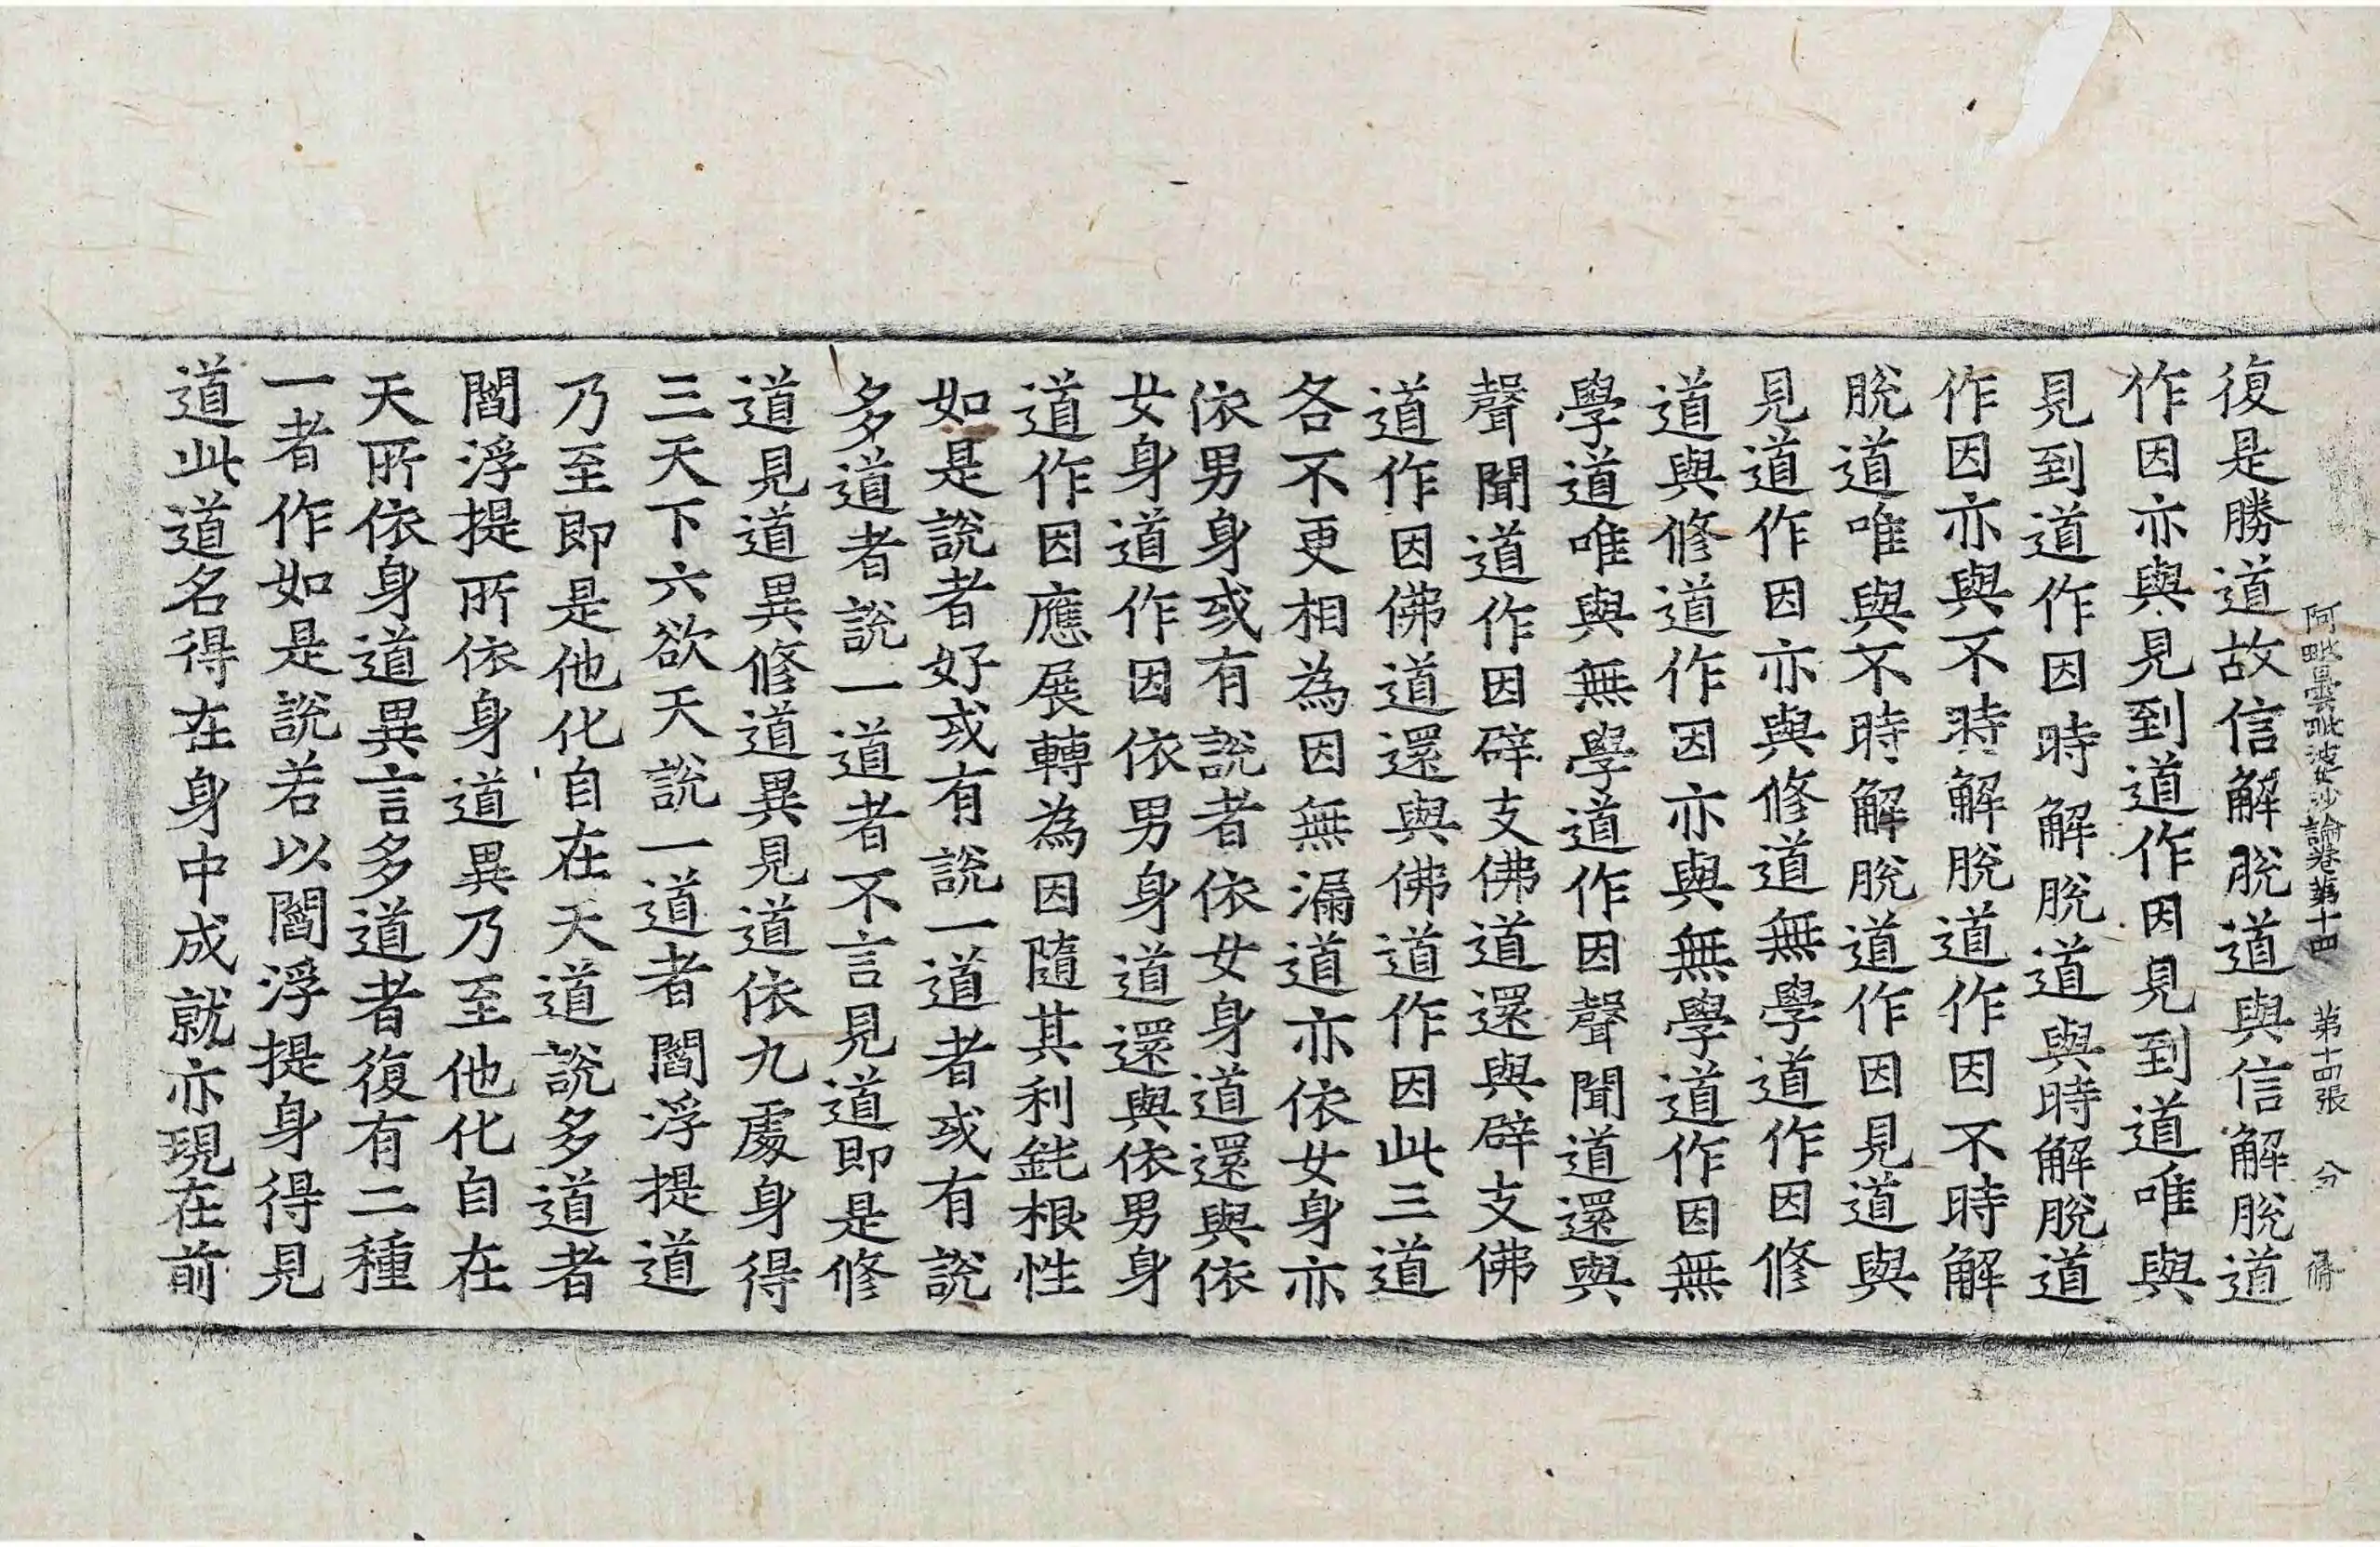 阿毗曇毗婆沙論卷第十四　第十四張　分
復是勝道故信解脫道與信解脫道
作因亦與見到道作因見到道唯與
見到道作因時解脫道與時解脫道
作因亦與不時解脫道作因不時解
脫道唯與不時解脫道作因見道與
見道作因亦與修道無學道作因修
道與修道作因亦與無學道作因無
學道唯與無學道作因聲聞道還與
聲聞道作因辟支佛道還與辟支佛
道作因佛道還與佛道作因此三道
各不更相為因無漏道亦依女身亦
依男身或有說者依女身道還與依
女身道作因依男身道還與依男身
道作因應展轉為因隨其利鈍根性
如是說者好或有說一道者或有說
多道者說一道者不言見道即是修
道見道異修道異見道依九處身得
三天下六欲天說一道者閻浮提道
乃至即是他化自在天道說多道者
閻浮提所依身道異乃至他化自在
天所依身道異言多道者復有二種
一者作如是說若以閻浮提身得見
道此道名得在身中成就亦現在前